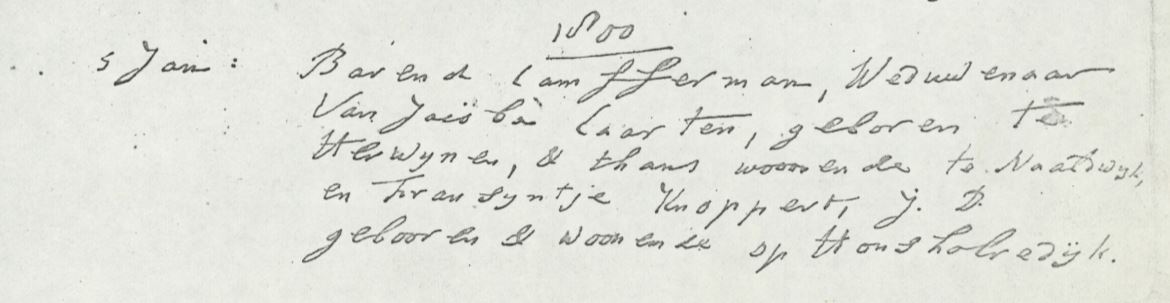 1800
5 Jan: Barend Lamfferman, Weduwenaar
Van Jacoba Laarten, geboren te
Herwynen, & thans woonende te Naaldwyk,
en Fransyntje Knoppert, J. D.
gebooren & woonende op Honsholredijk.